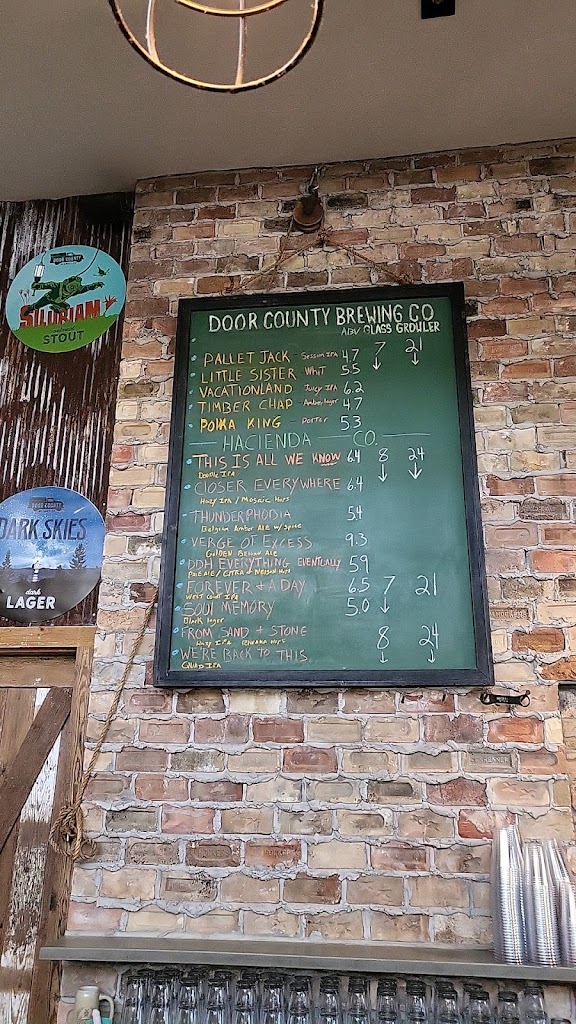 DOOR COUNTY
SILURIAM
STOUT
DOOR COUNTY
DARK SKIES
dark
LAGER
DOOR COUNTY BREWING CO.
ABV GLASS GROWLER
PALLET JACK - Session IPA 4.7 7 21
LITTLE SISTER - Whit 5.5
VACATIONLAND - Juicy IPA 6.2
TIMBER CHAP - Amber lager 4.7
POLKA KING - Porter 5.3
HACIENDA CO.
THIS IS ALL WE KNOW 6.4 8 24
Double IPA
CLOSER EVERYWHERE 6.4
Hazy IPA / Mosaic Hops
THUNDERPHOBIA 5.4
Belgian Amber Ale w/ Spice
VERGE OF EXCESS 9.3
GOLDEN Belgian ALE
DDH EVERYTHING EVENTUALLY 5.9
Pale Ale / CITRA & NELSON Hops
FOREVER + A DAY 6.5 7 21
WEST Coast IPA
SOUL MEMORY 5.0
Black lager
FROM SAND + STONE 8 24
Hazy IPA RIWAKA HOPS
WE'RE BACK TO THIS
QUAD IPA